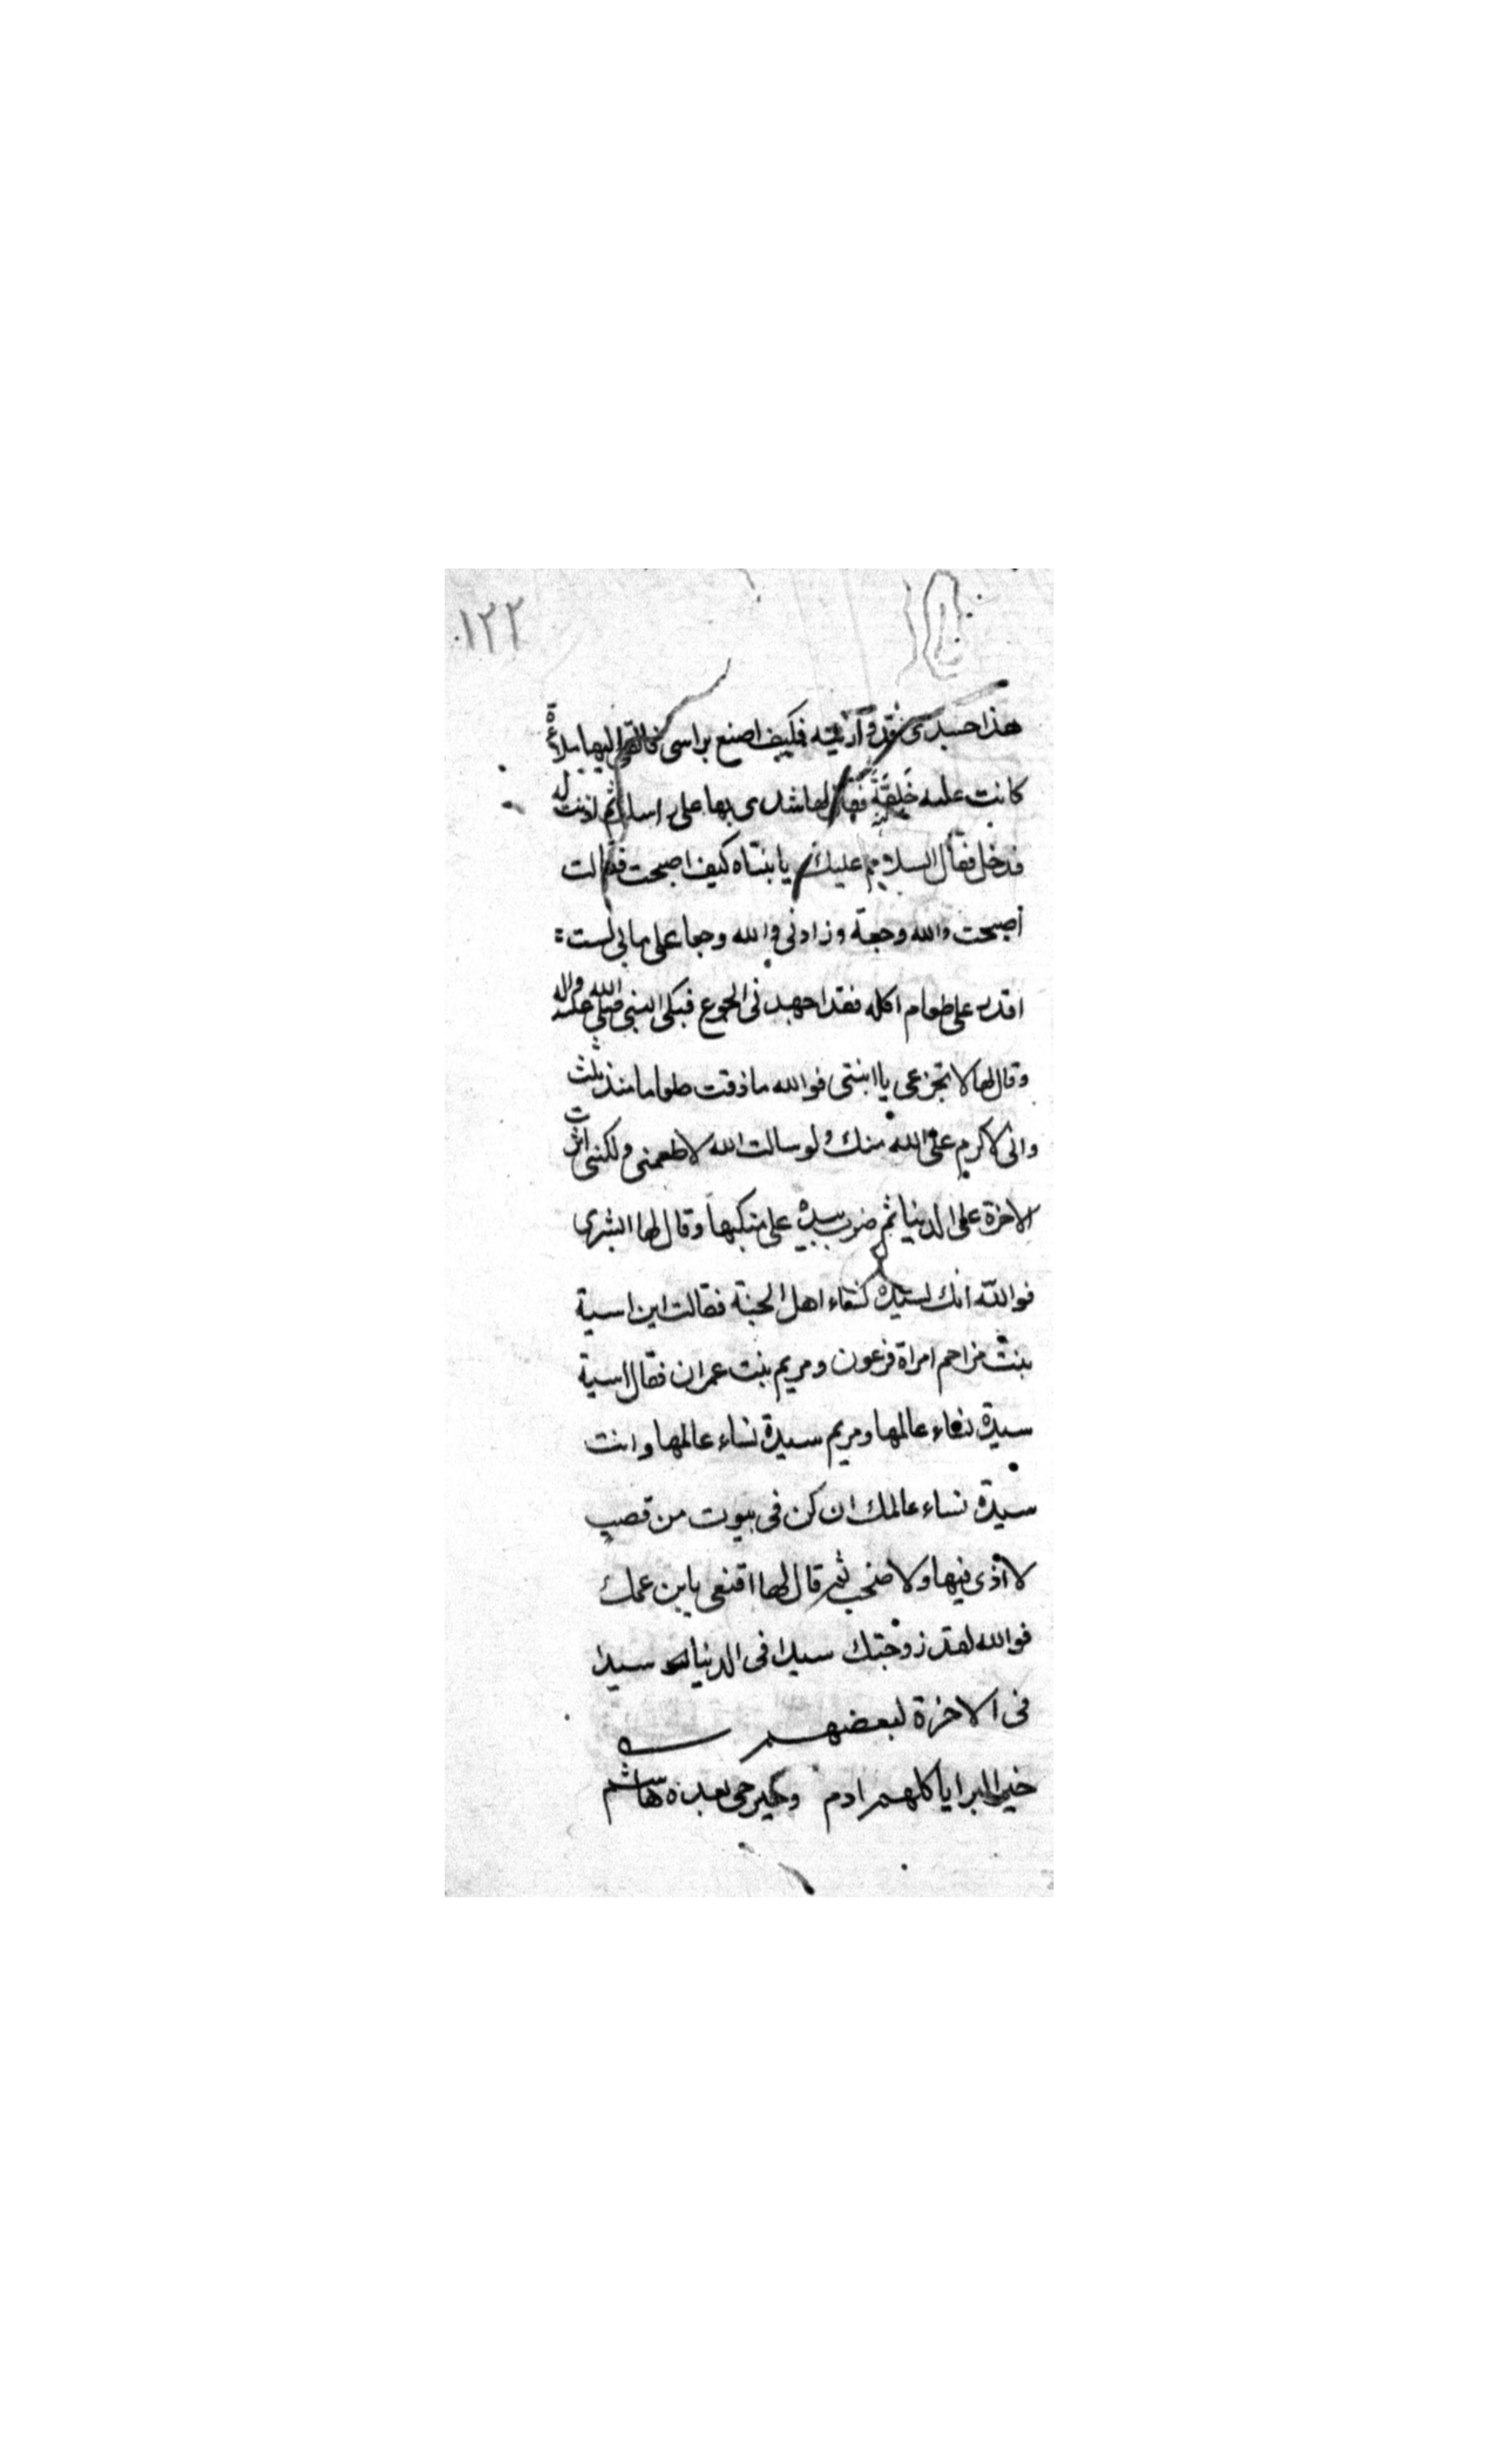 ١٢٢
هذا جسدى فقد وآريته فكيف اصنع براسى فالقى اليها ملاءة
كانت عليه خَلِقَةً فقال لها شدى بها على راسك ثم اذنت له
فدخل فقال السلام عليك يا بنتاه كيف اصبحت فقالت
أصبحت والله وجعة وزادنى والله وجعا على مابى لست
اقدر على طعام اكله فقد اجهدنى الجوع فبكى النبى صلى الله عليه واله
وقال لها لا تجزعى يا ابنتى فوالله ما ذقت طعاما منذ ثلث
وانى لاكرم على الله منك ولو سالت الله لاطعمنى ولكننى اثرت
الاخرة على الدنيا ثم ضرب بيده على منكبها وقال لها ابشرى
فوالله انك لسيدة نساء اهل الجنة فقالت اين اسية
بنت مزاحم امراة فرعون ومريم بنت عمران فقال اسية
سيدة نساء عالمها ومريم سيدة نساء عالمها وانت
سيدة نساء عالمك ان كن فى بيوت من قصب
لا أذى فيها ولا صخب ثم قال لها اقنعى بابن عمك
فوالله لقد زوجتك سيدا فى الدنيا سيدا
فى الاخرة لبعضهم
خير البرايا كلهم ادم وخير حى بعده هاشم